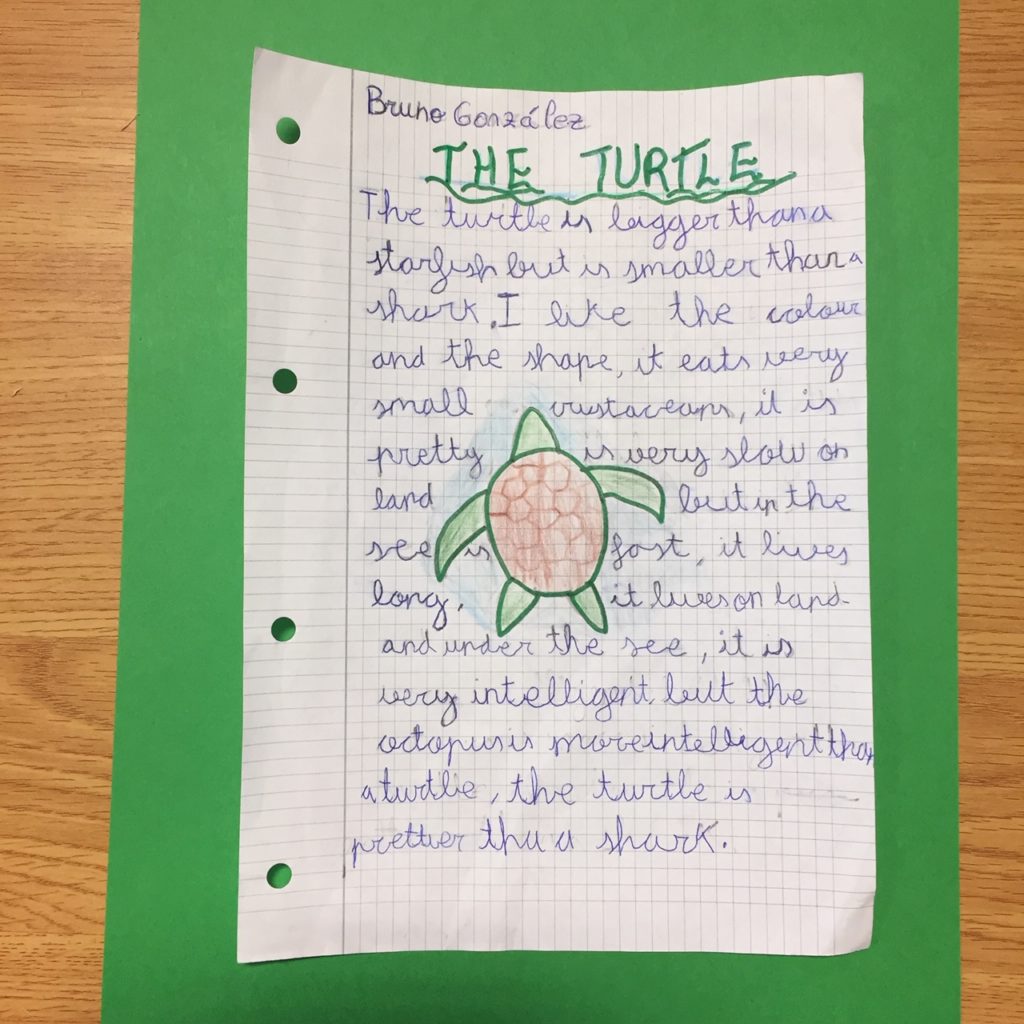 Bruno González
THE TURTLE
The turtle is bigger than a
starfish but is smaller than a
shark. I like the colour
and the shape, it eats very
small crustaceans, it is
pretty is very slow on
land but in the
see is fast, it lives
long, it lives on land
and under the see, it is
very intelligent but the
octopus is more intelligent than
a turtle, the turtle is
prettier tha a shark.